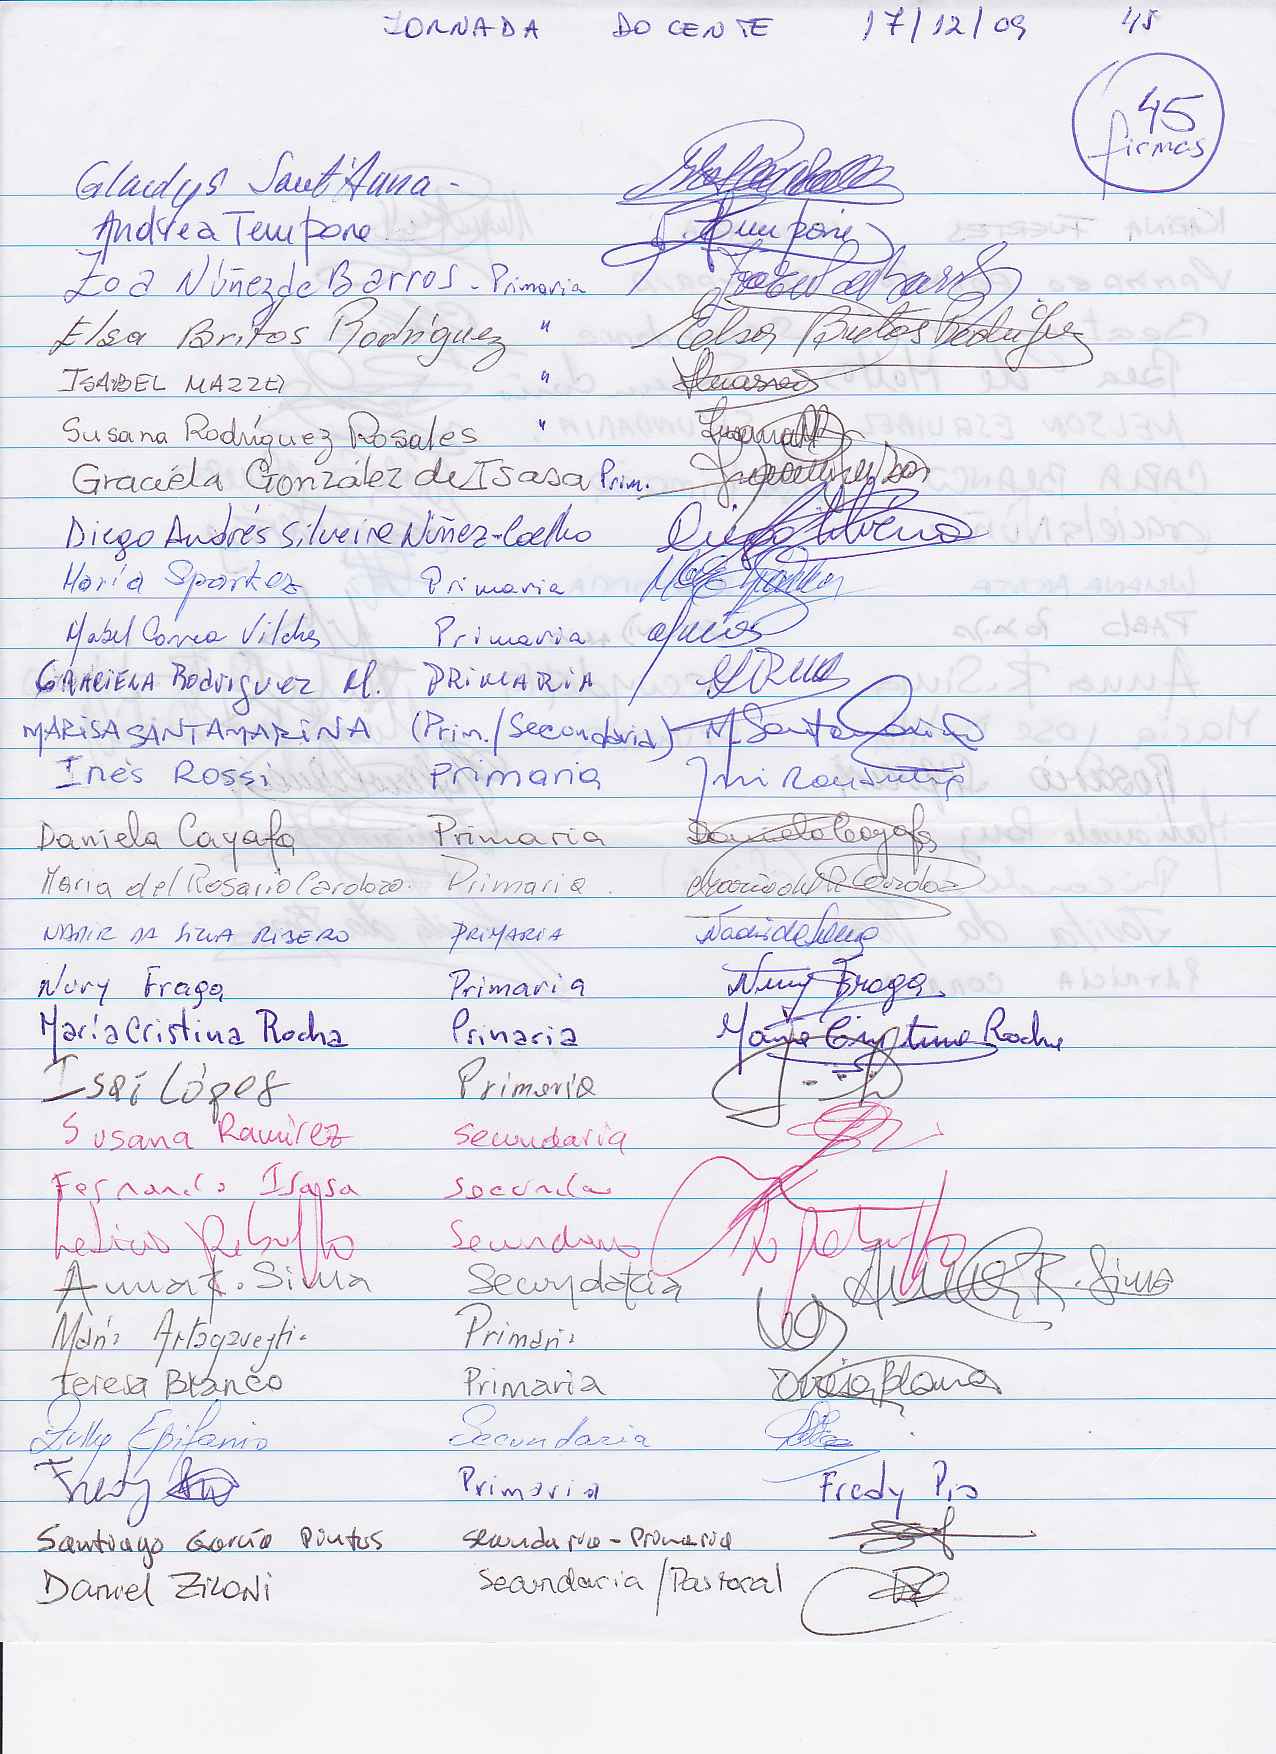 JORNADA DOCENTE 17/12/09 45
45 firmas
Gladys Sant'Anna -
Andrea Tempone Tempone
Zoa Núñez de Barros - Primaria
Elsa Britos Rodríguez " Elsa Britos Rodríguez
ISABEL MAZZEI "
Susana Rodríguez Rosales "
Graciela González de Isasa Prim.
Diego Andrés Silveira Núñez-Coelho Diego Silveira
María Spartez Primaria
Mabel Correa Vilches Primaria
GRACIELA RODRIGUEZ M. PRIMARIA
MARISA SANTAMARINA (Prim./Secondaria) M Santamarina
Inés Rossi Primaria
Daniela Cayafa Primaria Daniela Cayafa
Maria del Rosario Cardozo. Primaria.
NADIR DA SILVA RIBERO PRIMARIA
Nury Fraga Primaria Nury Fraga
María Cristina Rocha Primaria María Cristina Rocha
Isaí López Primaria
Susana Ramírez Secundaria
Fernando Isasa Secundar
Leticia Rebuffo Secundaria Rebuffo
Anna R. Sima Secundaria Anna R. Sima
María Artagaveytia Primaria
Teresa Branco Primaria Teresa Blanco
Zully Epifanio Secundaria
Fredy Primaria Fredy Pio
Santiago García Pintus Secundaria - Primaria
Daniel Ziloni Secundaria / Pastoral